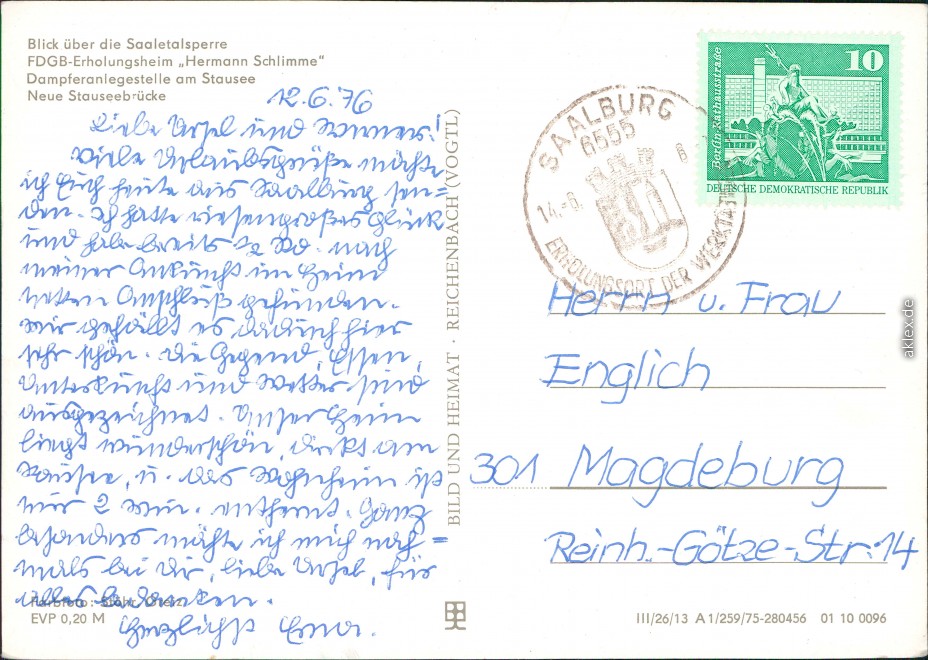 Blick über die Saaletalsperre
FDGB-Erholungsheim „Hermann Schlimme“
Dampferanlegestelle am Stausee
Neue Stauseebrücke
12.6.76
Liebe Ursel und Werner!
Viele Urlaubsgrüße möchte
ich Euch heute aus Saalburg sen=
den. Ich hatte riesengroßes Glück
und habe bereits 1/2 Std. nach
meiner Ankunft im Heim
netten Anschluß gefunden.
Mir gefällt es dadurch hier
sehr schön. Die Gegend, Essen,
Unterkunft und Wetter sind
ausgezeichnet. Unser Heim
liegt wunderschön, direkt am
Stausee, u. das Wohnheim ist
nur 2 Min. entfernt. Ganz
besonders möchte ich mich noch=
mals bei Dir, liebe Ursel, für
alles bedanken.
Herzlichst Erna.
Farbfoto:
EVP 0,20 M
BILD UND HEIMAT · REICHENBACH (VOGTL)
SAALBURG
6555
14.-6.
ERHOLUNGSORT DER WERKTÄTIGEN
10
Berlin-Rathausstraße
DEUTSCHE DEMOKRATISCHE REPUBLIK
Herrn u. Frau
Englich
301 Magdeburg
Reinh.-Götze-Str. 14
III/26/13 A 1/259/75-280456 01 10 0096
aklex.de